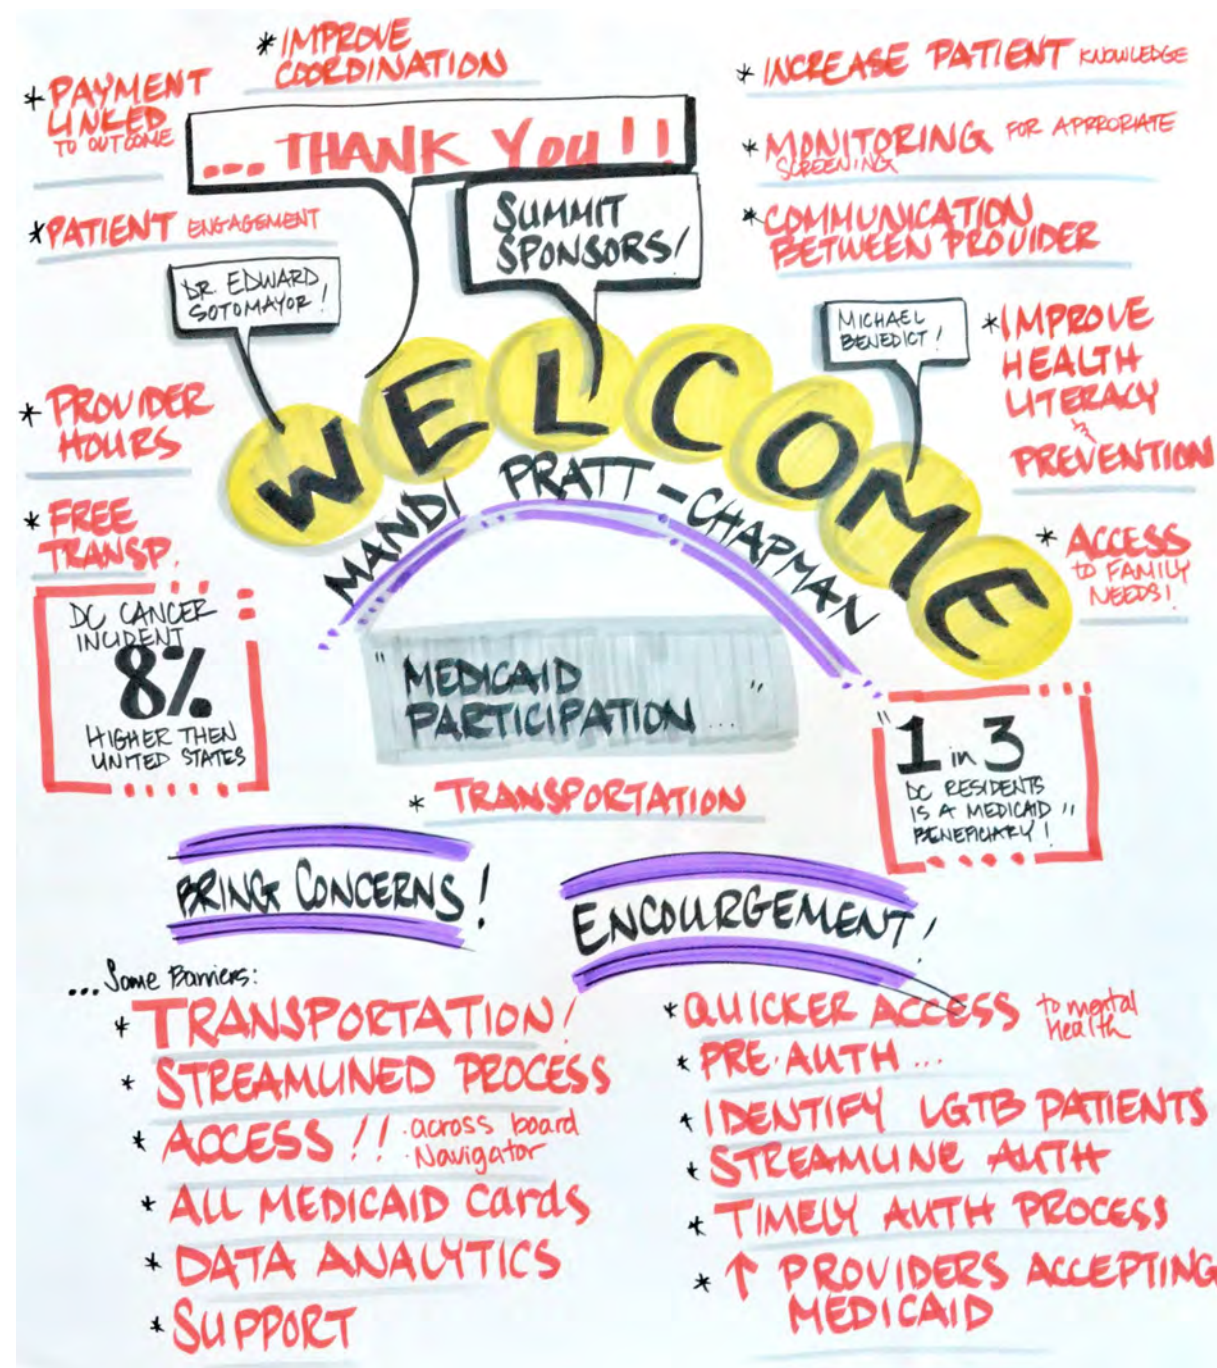 * IMPROVE
COORDINATION
* PAYMENT
LINKED
TO OUTCOME
* PATIENT ENGAGEMENT
... THANK YOU!!
SUMMIT
SPONSORS!
* INCREASE PATIENT KNOWLEDGE
* MONITORING FOR APRRORIATE
SCREENING
* COMMUNICATION
BETWEEN PROVIDER
DR. EDWARD
SOTOMAYOR!
MICHAEL
BENEDICT!
* IMPROVE
HEALTH
LITERACY
&
PREVENTION
* PROVIDER
HOURS
* FREE
TRANSP.
WELCOME
MANDI PRATT-CHAPMAN
* ACCESS
TO FAMILY
NEEDS!
DC CANCER
INCIDENT
8%
HIGHER THEN
UNITED STATES
"MEDICAID
PARTICIPATION..."
* TRANSPORTATION
"1 in 3
DC RESIDENTS
IS A MEDICAID
BENEFICIARY!"
BRING CONCERNS!
... Some Barriers:
* TRANSPORTATION!
* STREAMLINED PROCESS
* ACCESS!! · across board
· Navigator
* ALL MEDICAID Cards
* DATA ANALYTICS
* SUPPORT
ENCOURGEMENT!
* QUICKER ACCESS to mental
Health
* PRE·AUTH...
* IDENTIFY LGTB PATIENTS
* STREAMLINE AUTH
* TIMELY AUTH PROCESS
* ↑ PROVIDERS ACCEPTING
MEDICAID